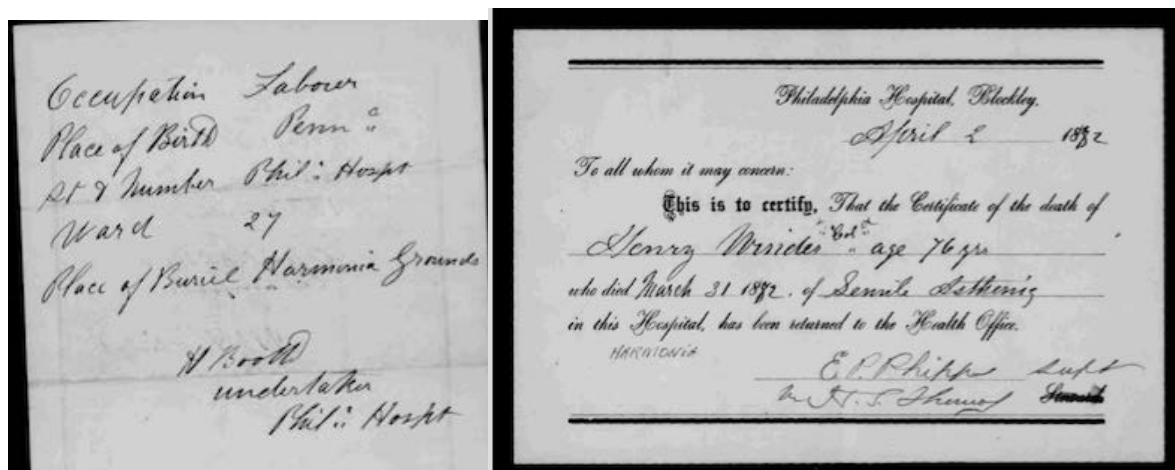 Occupation Labourer
Place of Birth Penna
St & Number Phila: Hospt
Ward 27
Place of Buriel Harmonia Grounds
H Booth
undertaker
Phila: Hospt
Philadelphia Hospital, Blockley.
April 2 1882
To all whom it may concern:
This is to certify, That the Certificate of the death of
Henry "Col'd" age 76 yrs
who died March 31 1882. of Senile Asthenia
in this Hospital, has been returned to the Health Office.
HARMONIA
E. P. Phipps supt
H. S.